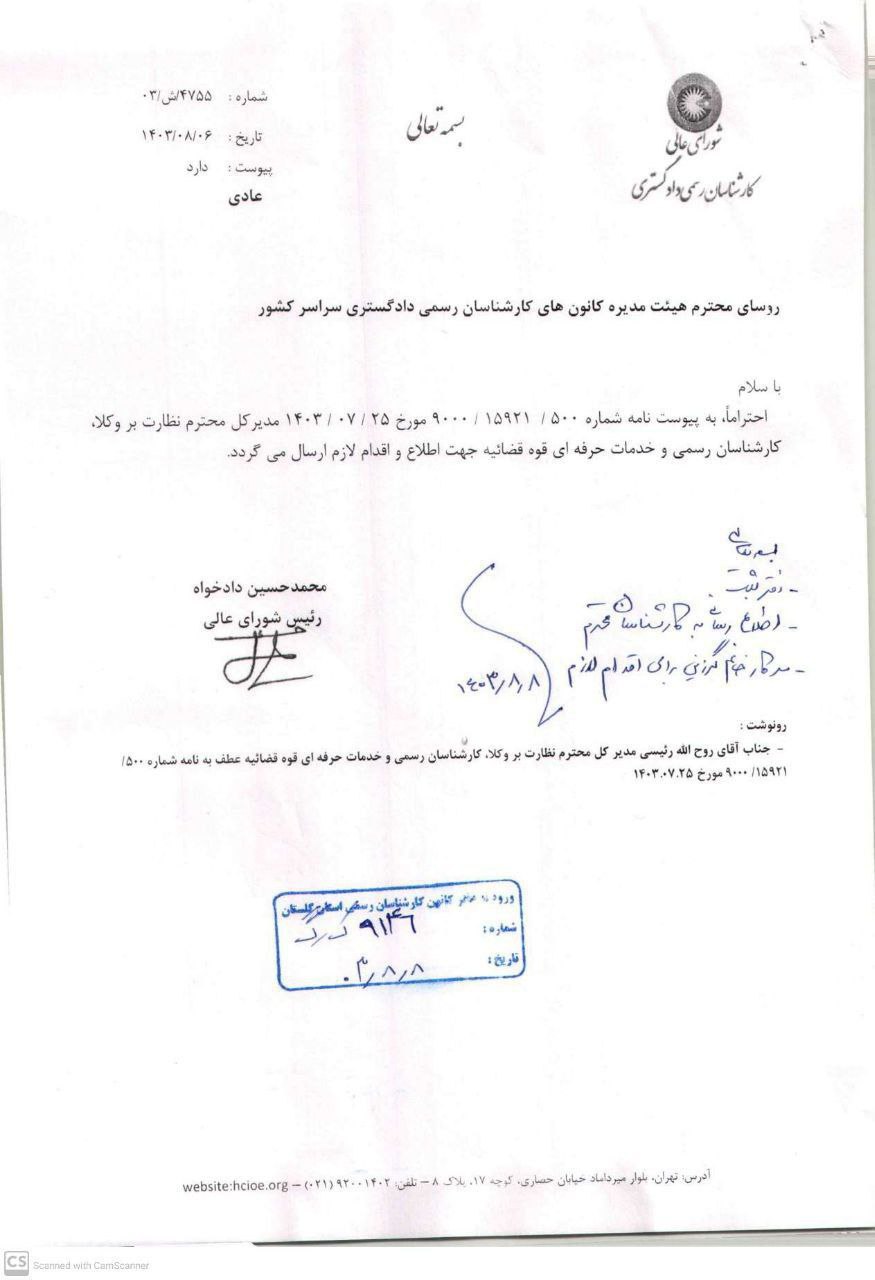 شورای عالی
کارشناسان رسمی دادگستری
بسمه تعالی
شماره : ۴۷۵۵/ش/۰۳
تاریخ : ۱۴۰۳/۰۸/۰۶
پیوست : دارد
عادی
روسای محترم هیئت مدیره کانون های کارشناسان رسمی دادگستری سراسر کشور
با سلام
احتراماً، به پیوست نامه شماره ۵۰۰ / ۱۵۹۲۱ / ۹۰۰۰ مورخ ۲۵ / ۰۷ / ۱۴۰۳ مدیرکل محترم نظارت بر وکلا،
کارشناسان رسمی و خدمات حرفه ای قوه قضائیه جهت اطلاع و اقدام لازم ارسال می گردد.
محمدحسین دادخواه
رئیس شورای عالی
بسمه تعالی
- دفتر ثبت
- اطلاع رسانی به کارشناسان محترم
- سرکار خانم گرزین برای اقدام لازم
۱۴۰۳/۸/۸
رونوشت :
- جناب آقای روح الله رئیسی مدیر کل محترم نظارت بر وکلا، کارشناسان رسمی و خدمات حرفه ای قوه قضائیه عطف به نامه شماره ۵۰۰/
۱۵۹۲۱/ ۹۰۰۰ مورخ ۱۴۰۳.۰۷.۲۵
ورود به دفتر کانون کارشناسان رسمی استان گلستان
شماره : ۹۱۴۶
تاریخ : ۰۳/۸/۸
آدرس: تهران، بلوار میرداماد خیابان حصاری، کوچه ۱۷، پلاک ۸ – تلفن: ۹۲۰۰۱۴۰۲ (۰۲۱) – website:hcioe.org
CS Scanned with CamScanner